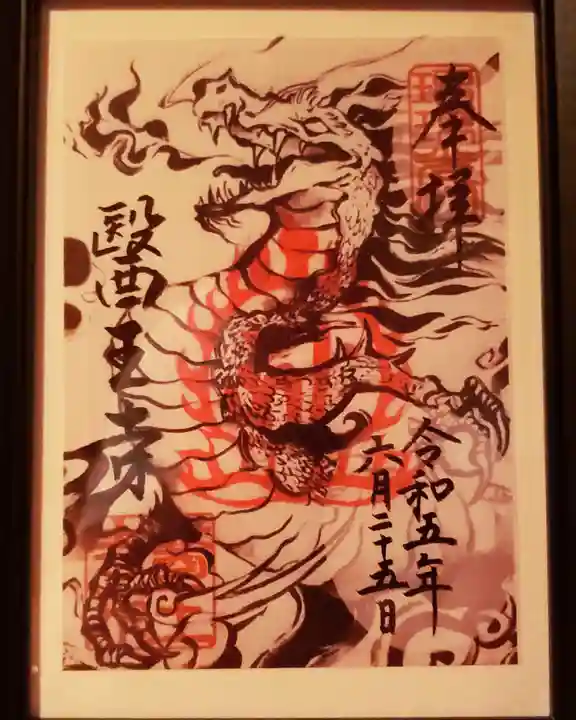 奉拝
令和五年
六月二十五日
醫王寺